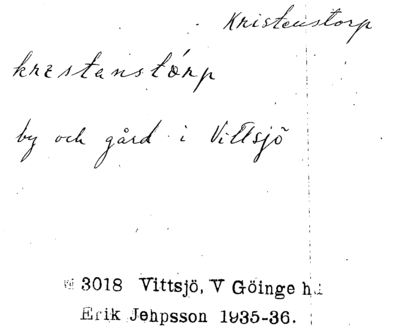 Kristenstorp
krestanstórp
by och gård i Vittsjö
3018 Vittsjö, V Göinge hd
Erik Jehpsson 1935-36.